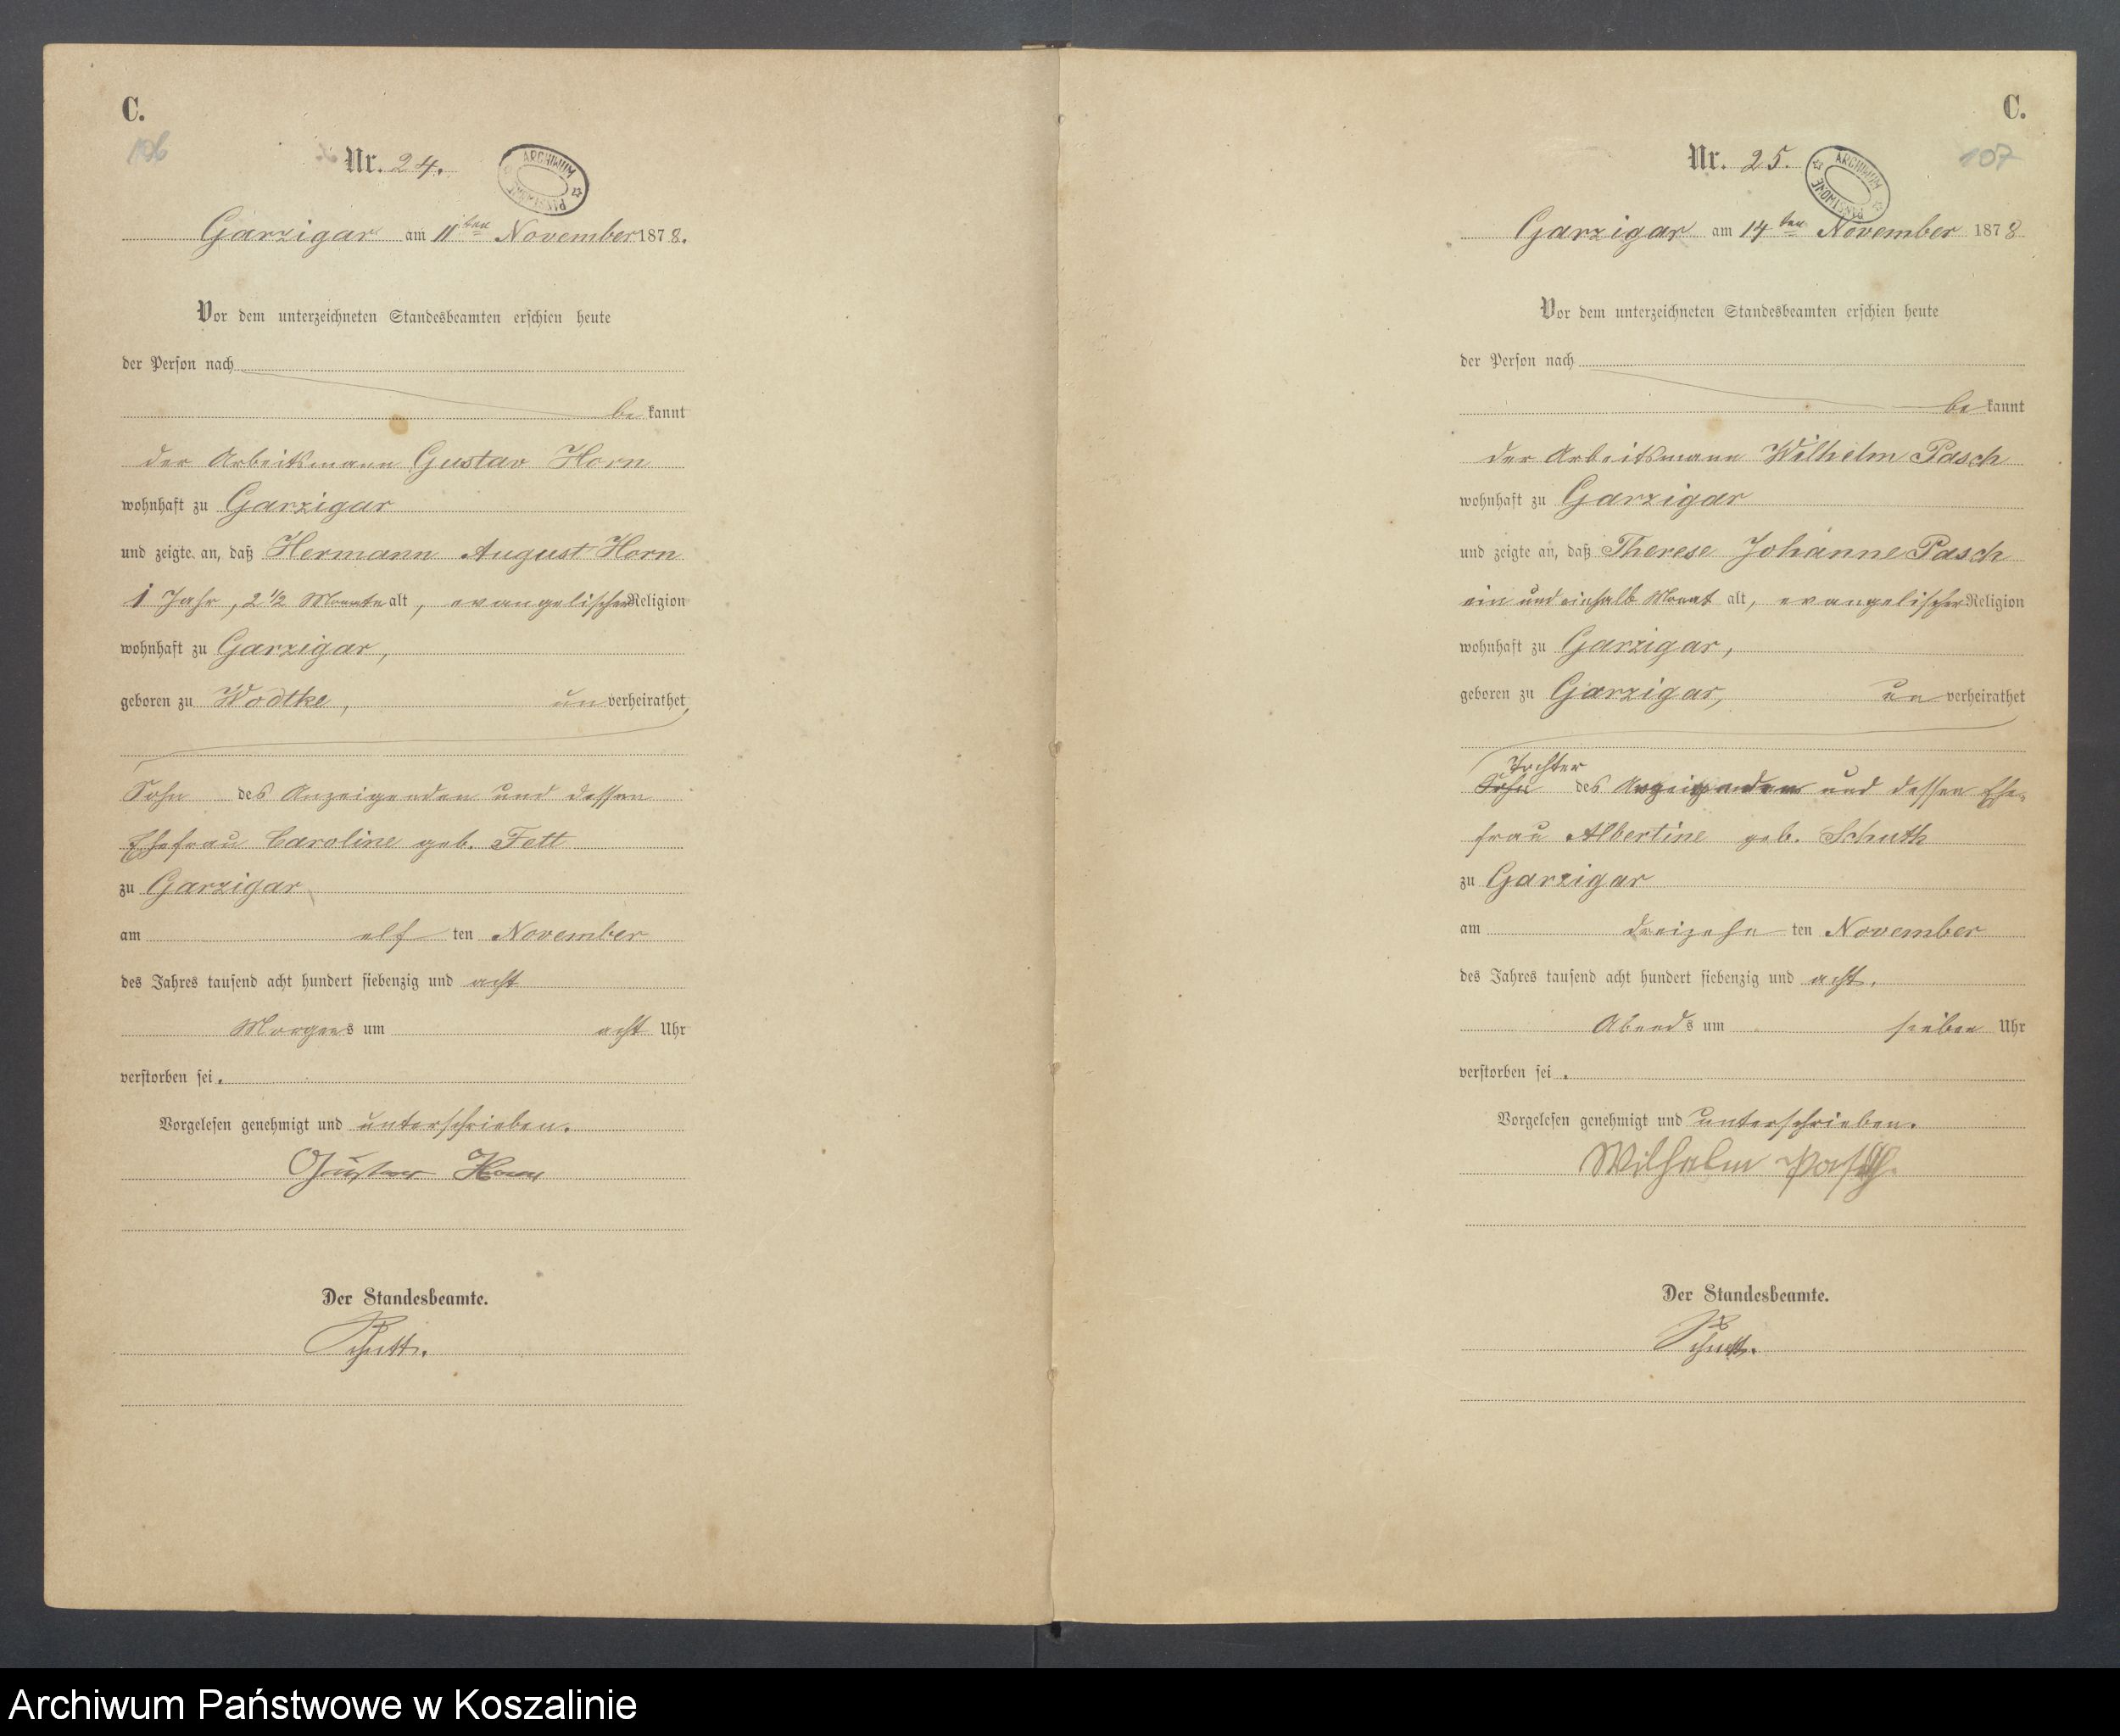 C.
106
Nr. 24.
ARCHIWUM PAŃSTWOWE
Garzigar am 11ten November 1878.
Vor dem unterzeichneten Standesbeamten erschien heute
der Person nach
be kannt
der Arbeitsmann Gustav Horn
wohnhaft zu Garzigar
und zeigte an, daß Hermann August Horn
1 Jahr, 2 1/2 Monate alt, evangelischer Religion
wohnhaft zu Garzigar,
geboren zu Wodtke, un verheirathet,
Sohn des Anzeigenden und dessen
Ehefrau Caroline geb. Fett
zu Garzigar
am elf ten November
des Jahres tausend acht hundert siebenzig und acht
Morgens um acht Uhr
verstorben sei.
Vorgelesen genehmigt und unterschrieben.
Gustav Horn
Der Standesbeamte.
Schutt.
C.
107
Nr. 25.
ARCHIWUM PAŃSTWOWE
Garzigar am 14ten November 1878
Vor dem unterzeichneten Standesbeamten erschien heute
der Person nach
be kannt
der Arbeitsmann Wilhelm Pasch
wohnhaft zu Garzigar
und zeigte an, daß Therese Johanne Pasch
ein und einhalb Monat alt, evangelischer Religion
wohnhaft zu Garzigar,
geboren zu Garzigar, un verheirathet
Tochter
Sohn des Anzeigenden und dessen Ehe-
frau Albertine geb. Schuth
zu Garzigar
am dreizehn ten November
des Jahres tausend acht hundert siebenzig und acht.
Abends um sieben Uhr
verstorben sei.
Vorgelesen genehmigt und unterschrieben.
Wilhelm Pasch.
Der Standesbeamte.
Schutt.
Archiwum Państwowe w Koszalinie